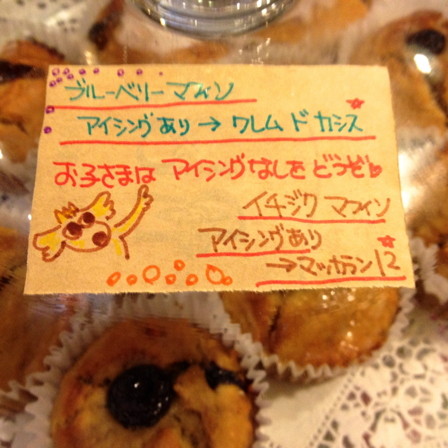 ブルーベリーマフィン
アイシングあり→クレムドカシス
お子さまはアイシングなしをどうぞ
イチジクマフィン
アイシングあり
→マッカラン12